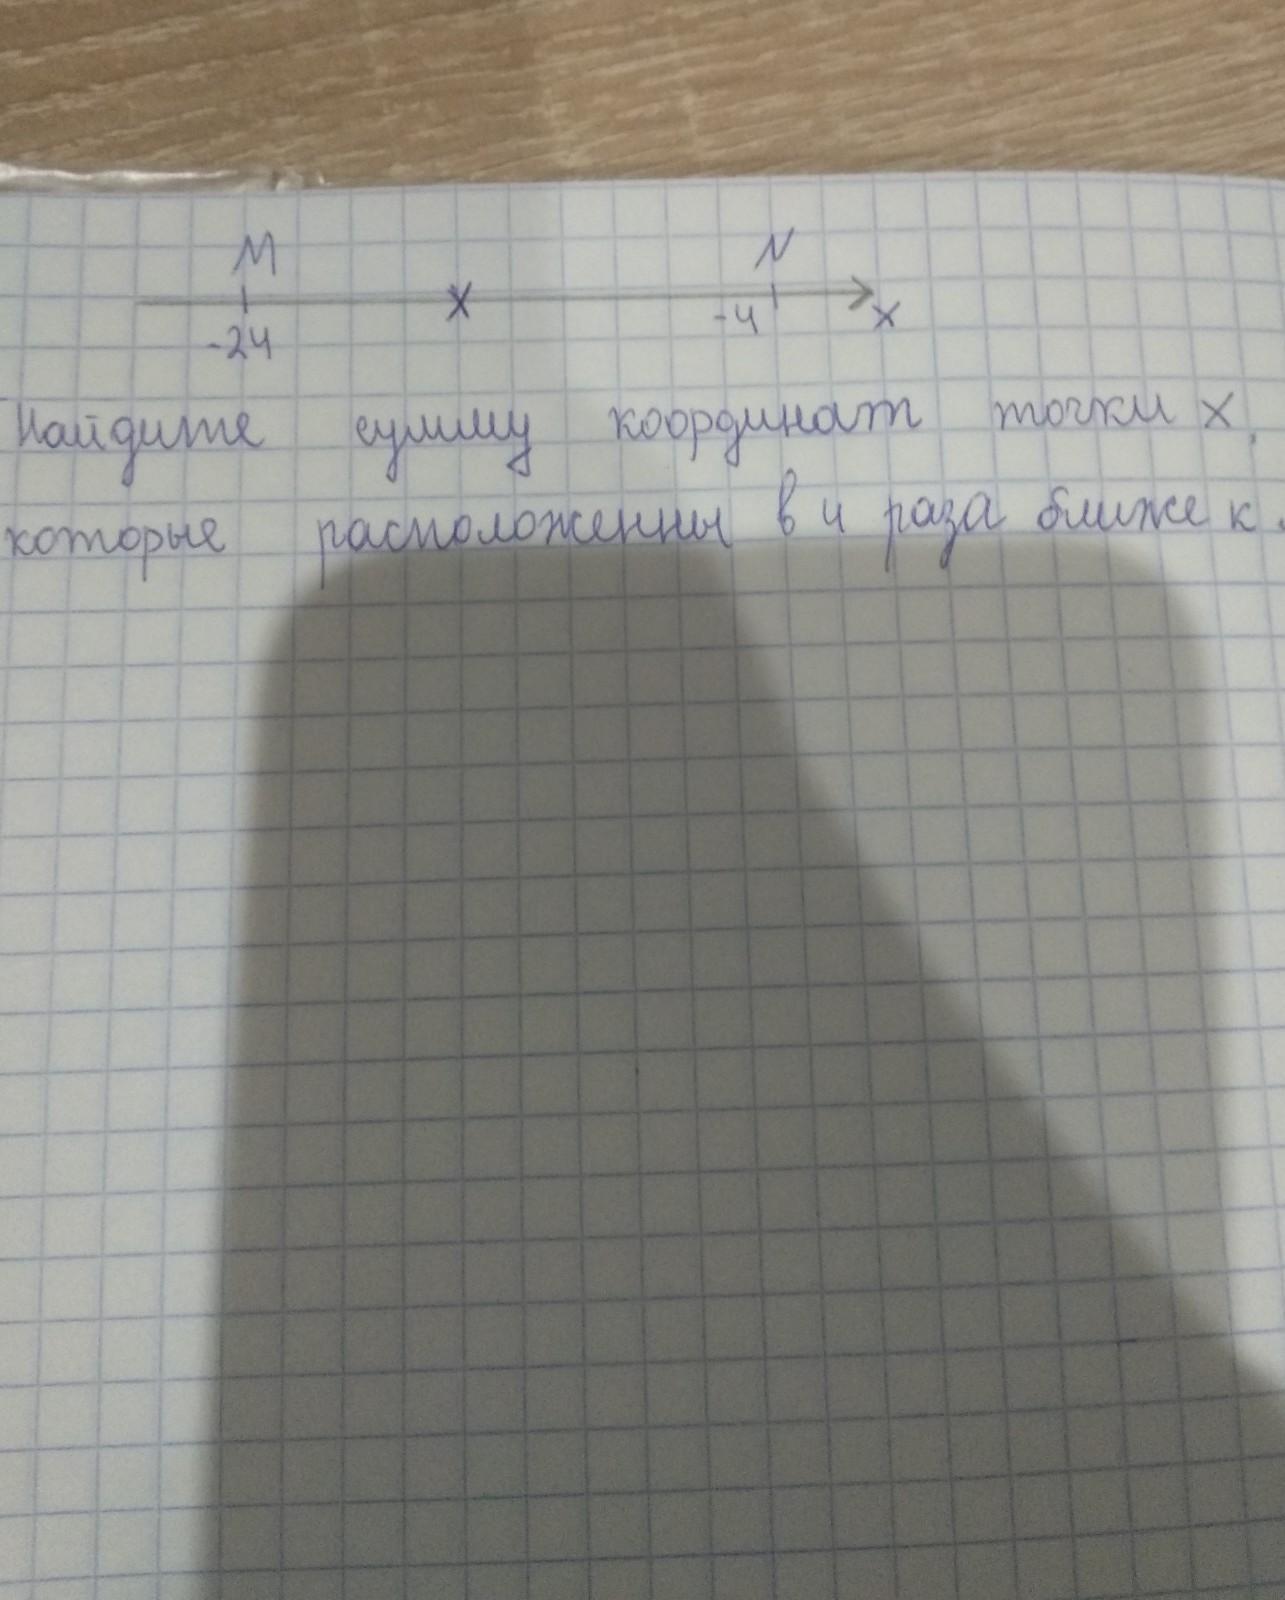 M N
-24 x -4 x
Найдите сумму координат точки x,
которые расположенны в 4 раза ближе к